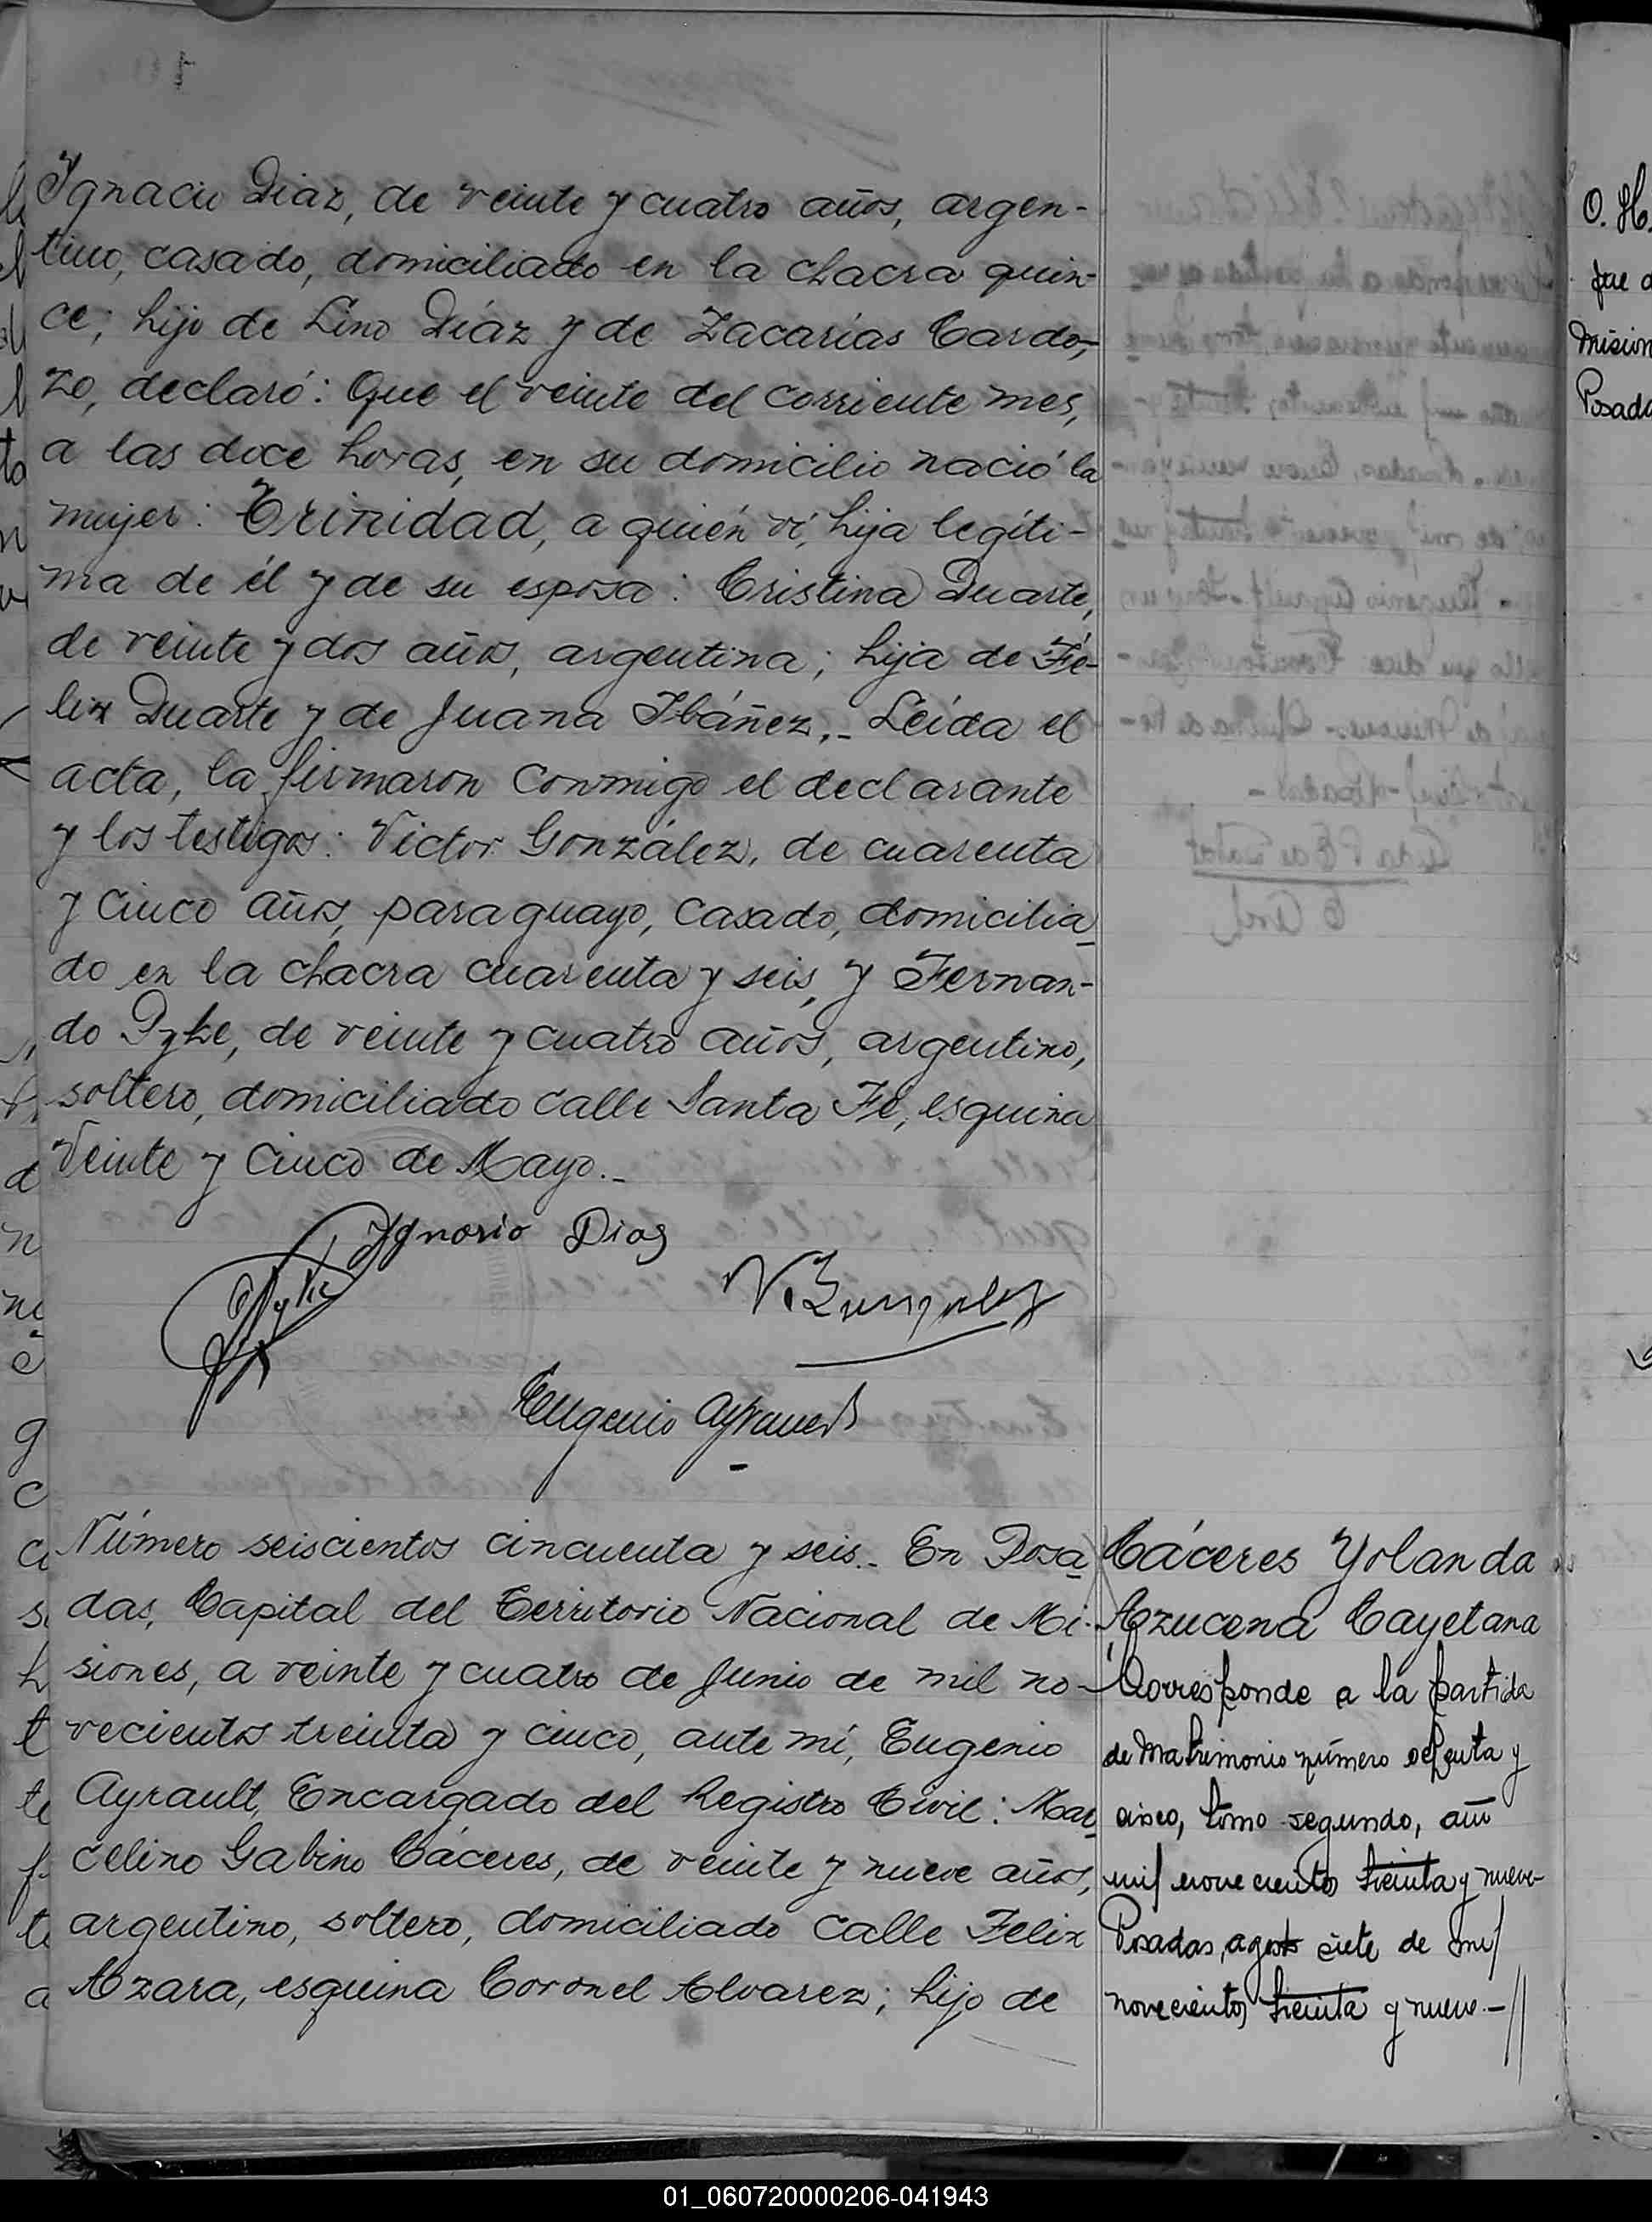 Ignacio Diaz, de veinte y cuatro años, argen-
tino, casado, domiciliado en la chacra quin-
ce; hijo de Lino Diáz y de Zacarías Cardo-
zo, declaró: Que el veinte del corriente mes,
a las doce horas, en su domicilio nació la
mujer: Trinidad, a quién ví, hija legíti-
ma de él y de su esposa: Cristina Duarte,
de veinte y dos años, argentina; hija de Fé-
lix Duarte y de Juana Ibáñez.- Leída el
acta, la firmaron conmigo el declarante
y los testigos: Victor González, de cuarenta
y cinco años, paraguayo, casado, domicilia
do en la chacra cuarenta y seis, y Fernan-
do Pyke, de veinte y cuatro años, argentino,
soltero, domiciliado calle Santa Fé, esquina
Veinte y cinco de Mayo.-
Ygnasio Dias
V. Gonzalez
Eugenio Ayrault
Número seiscientos cincuenta y seis.- En Posa
das, Capital del Territorio Nacional de Mi-
siones, a veinte y cuatro de Junio de mil no-
vecientos treinta y cinco, ante mí, Eugenio
Ayrault, Encargado del Registro Civil: Mar
celino Gabino Cáceres, de veinte y nueve años,
argentino, soltero, domiciliado calle Felix
Azara, esquina Coronel Alvarez; hijo de
Cáceres Yolanda
Azucena Cayetana
Corresponde a la partida
de Matrimonio número setenta y
cinco, tomo segundo, año
mil novecientos treinta y nueve-
Posadas, agosto siete de mil
novecientos treinta y nueve.-//
O. H.
fue
Mision
Posada
01_060720000206-041943